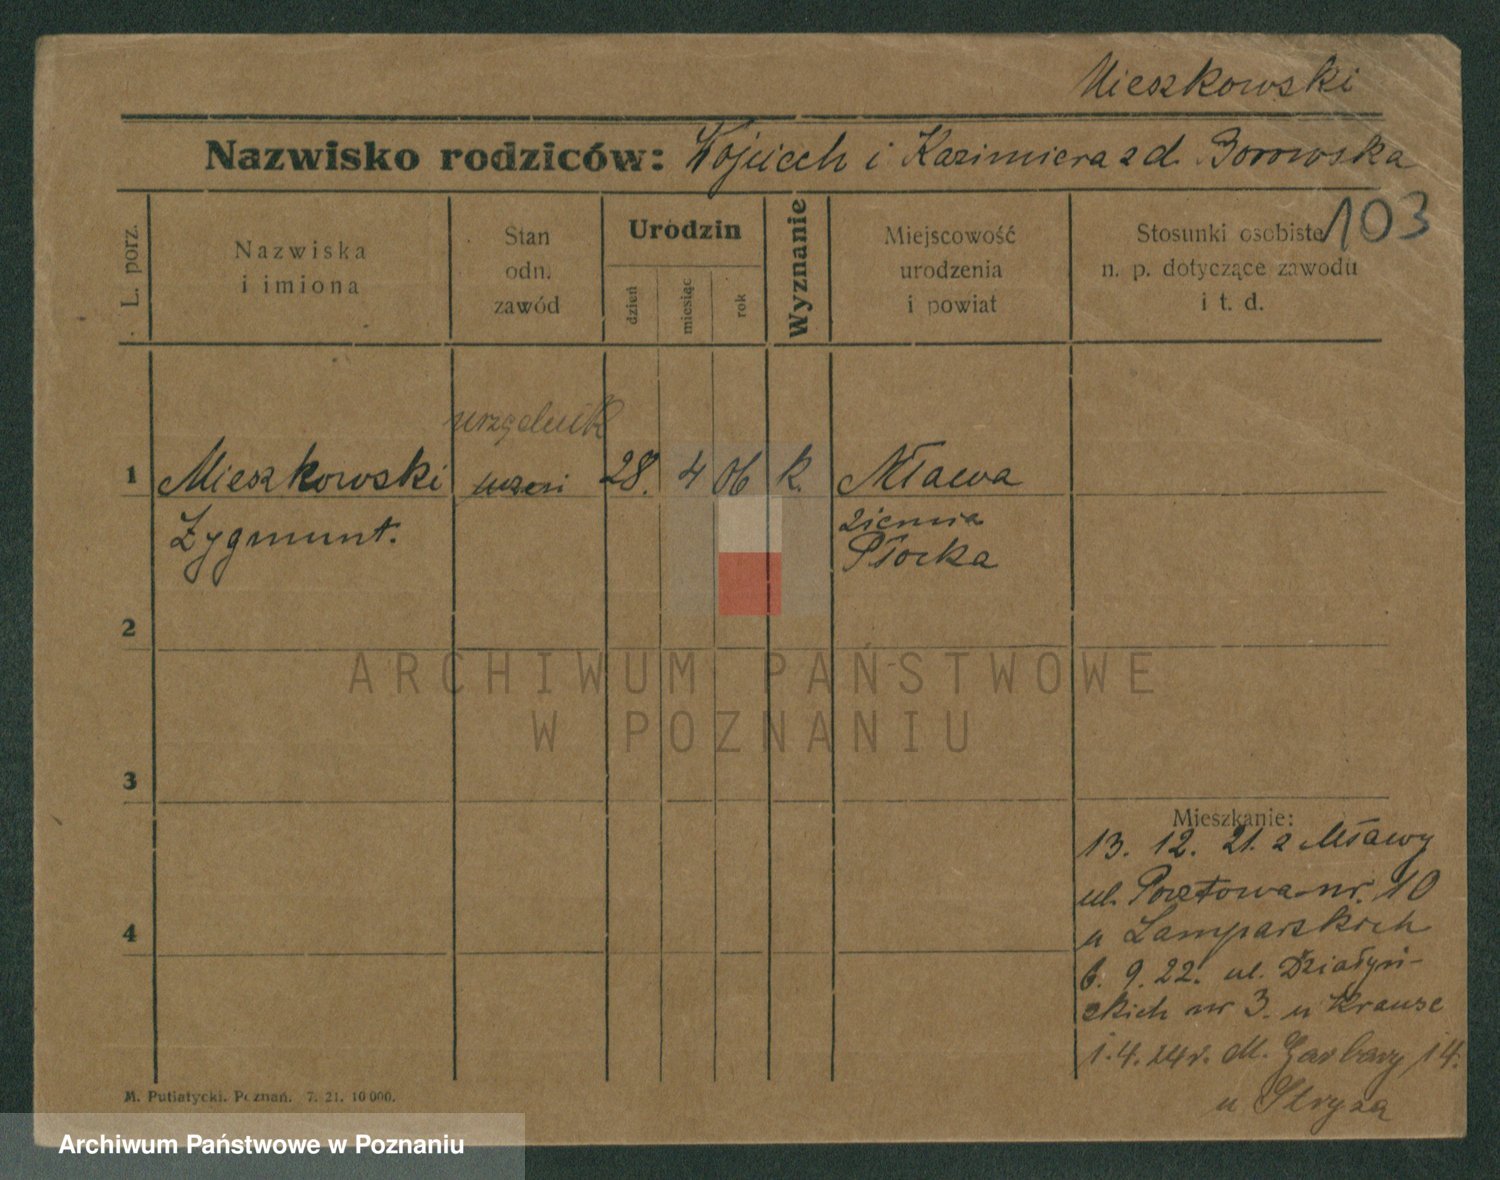 Mieszkowski
Nazwisko rodziców: Wojciech i Kazimiera z d. Borowska
103
L. porz.
Nazwiska
i imiona
Stan
odn.
zawód
Urodzin
dzień
miesiąc
rok
Wyznanie
Miejscowość
urodzenia
i powiat
Stosunki osobiste
n. p. dotyczące zawodu
i t. d.
urzędnik
1 Mieszkowski uczeń 28. 4 06 k. Mława
Zygmunt.
ziemia
Płocka
2
3
4
ARCHIWUM PAŃSTWOWE
W POZNANIU
Mieszkanie:
13. 12. 21. z Mławy
ul. Pocztowa nr. 10
u Lamparskich
6. 9. 22. ul. Działyń-
skich nr 3. u Krause
1. 4. 24 r. M. Garbary 14.
u
M. Putiatycki. Poznań. 7. 21. 10 000.
Archiwum Państwowe w Poznaniu